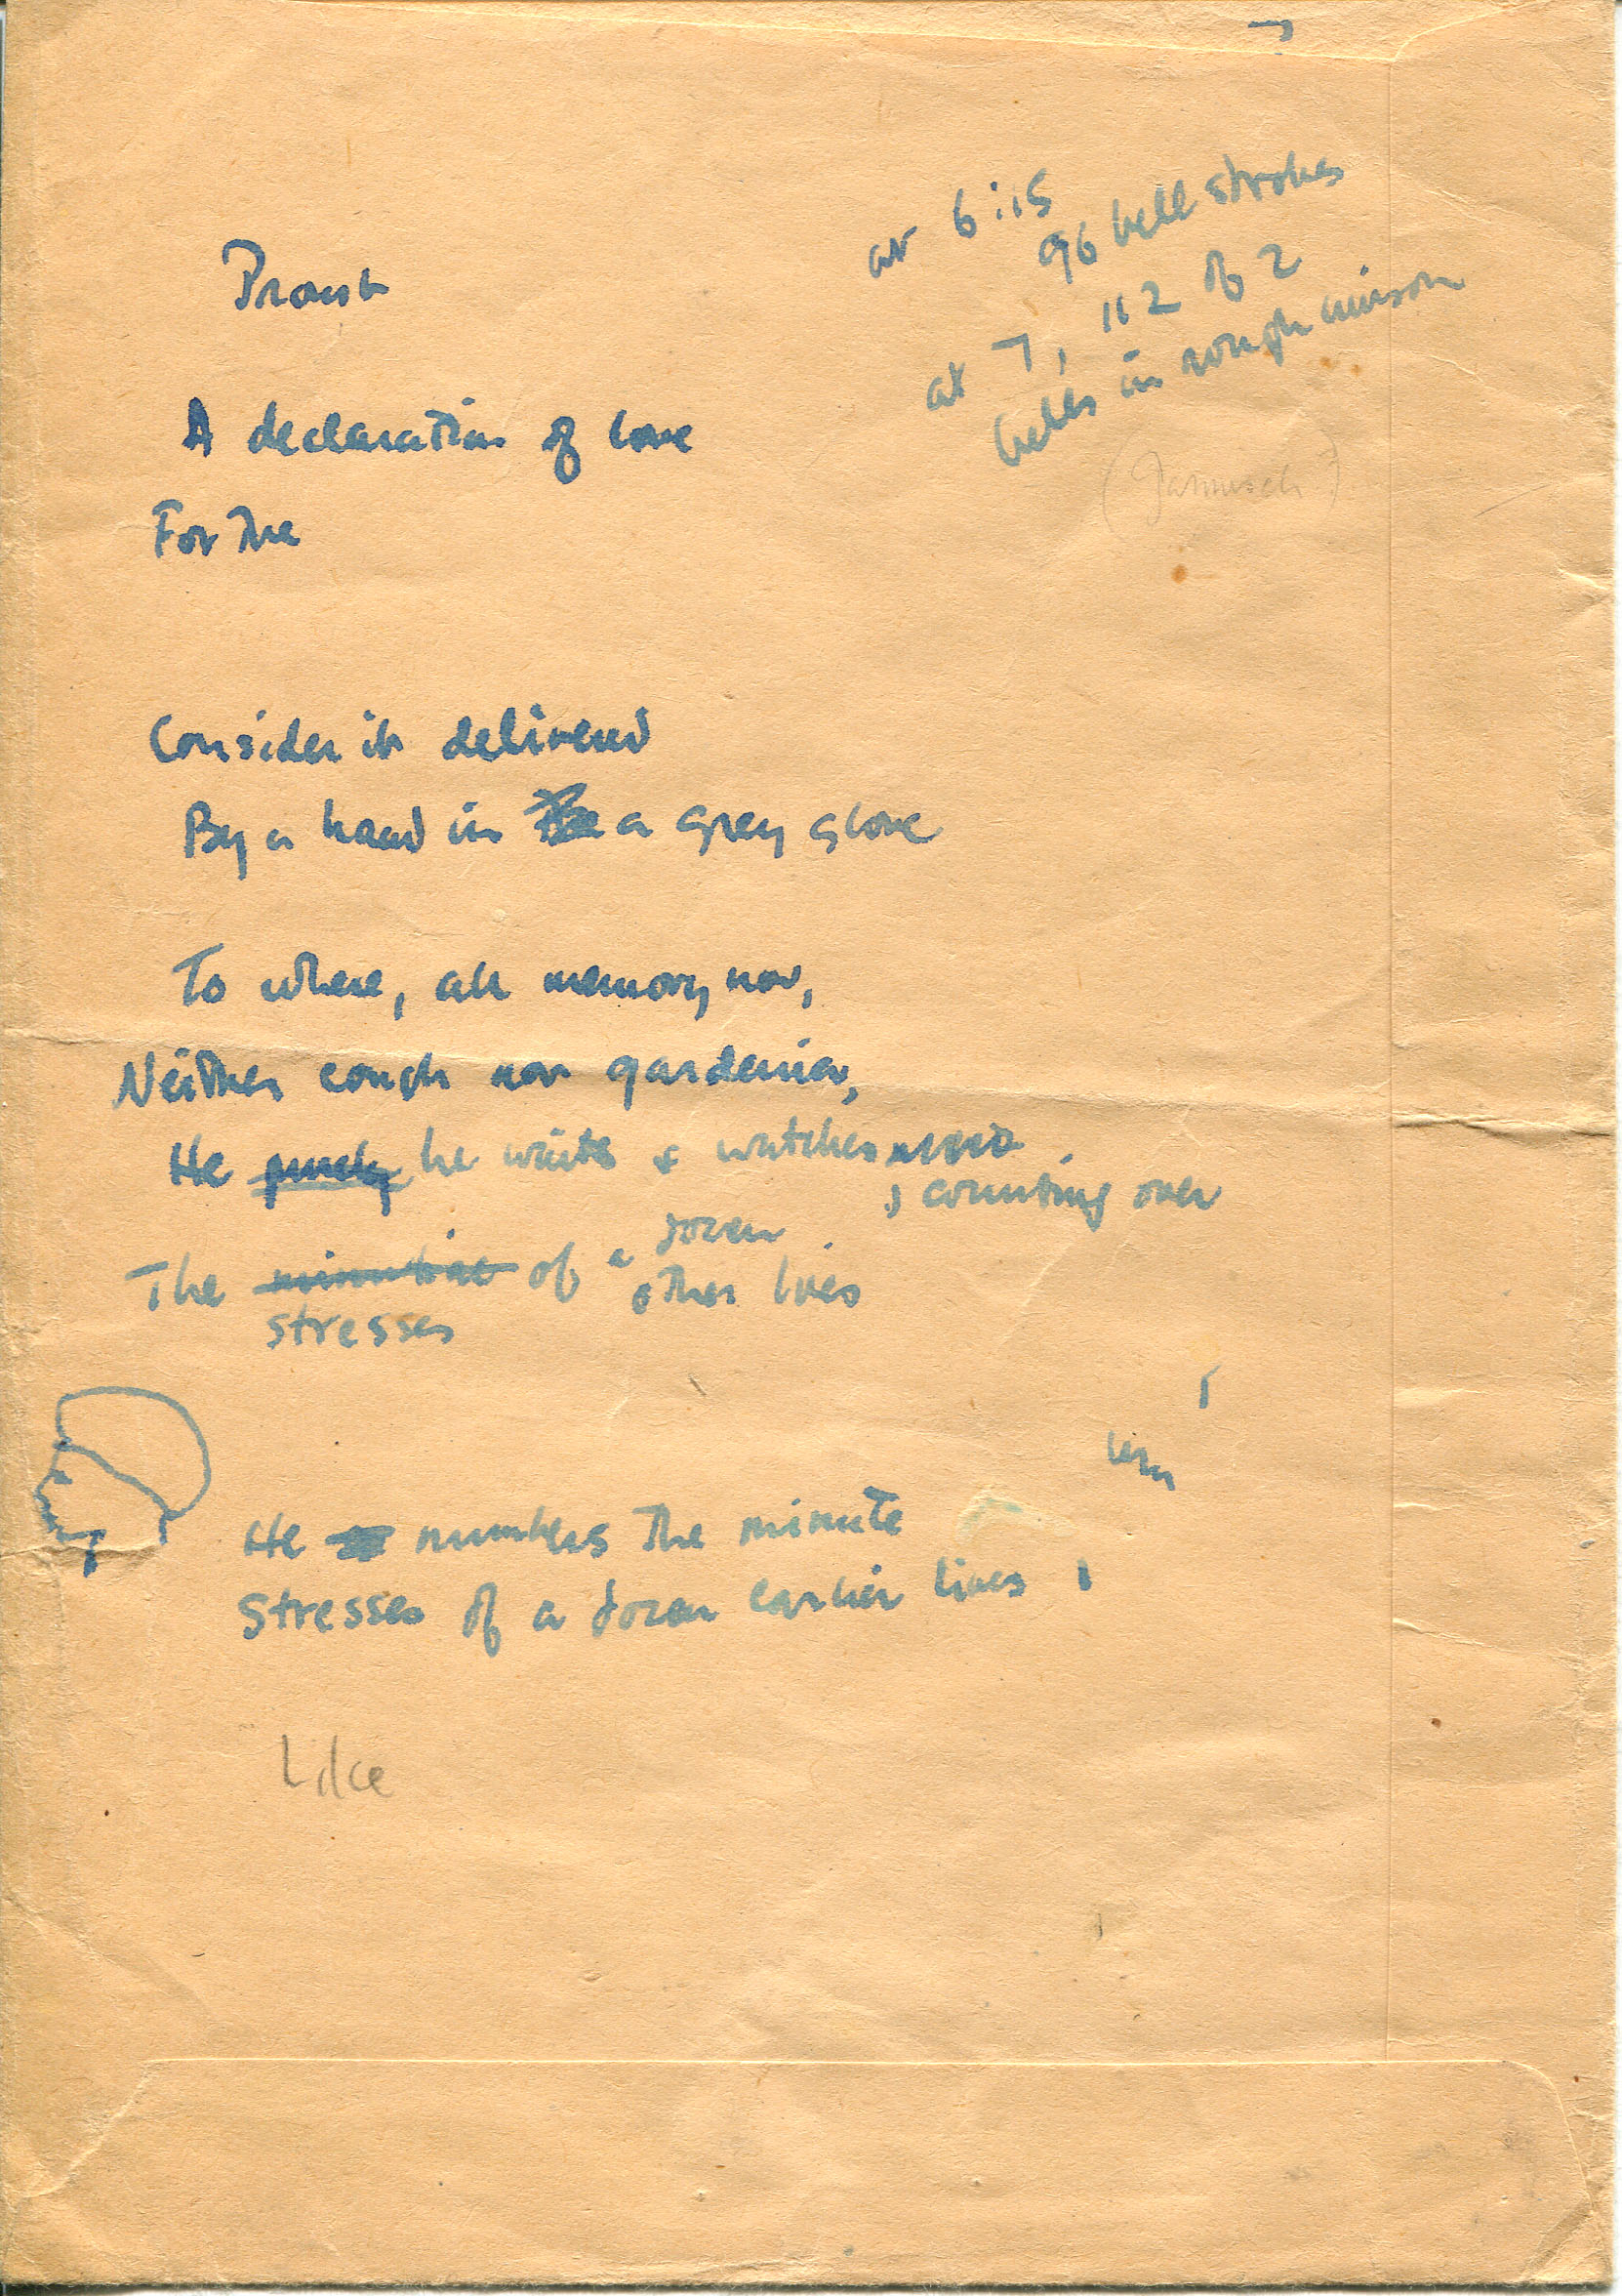 at 6:15
96 bell strokes
at 7, 112 of 2
bells in rough unison
Proust
A declaration of love
For the
Consider it delivered
By a hand in a grey glove
To where, all memory now,
Neither cough nor gardenia,
He he waits & watches
, counting over
The minutiae of a dozen
other lives
stresses
He numbers the minute
Stresses of a dozen earlier lives
Like